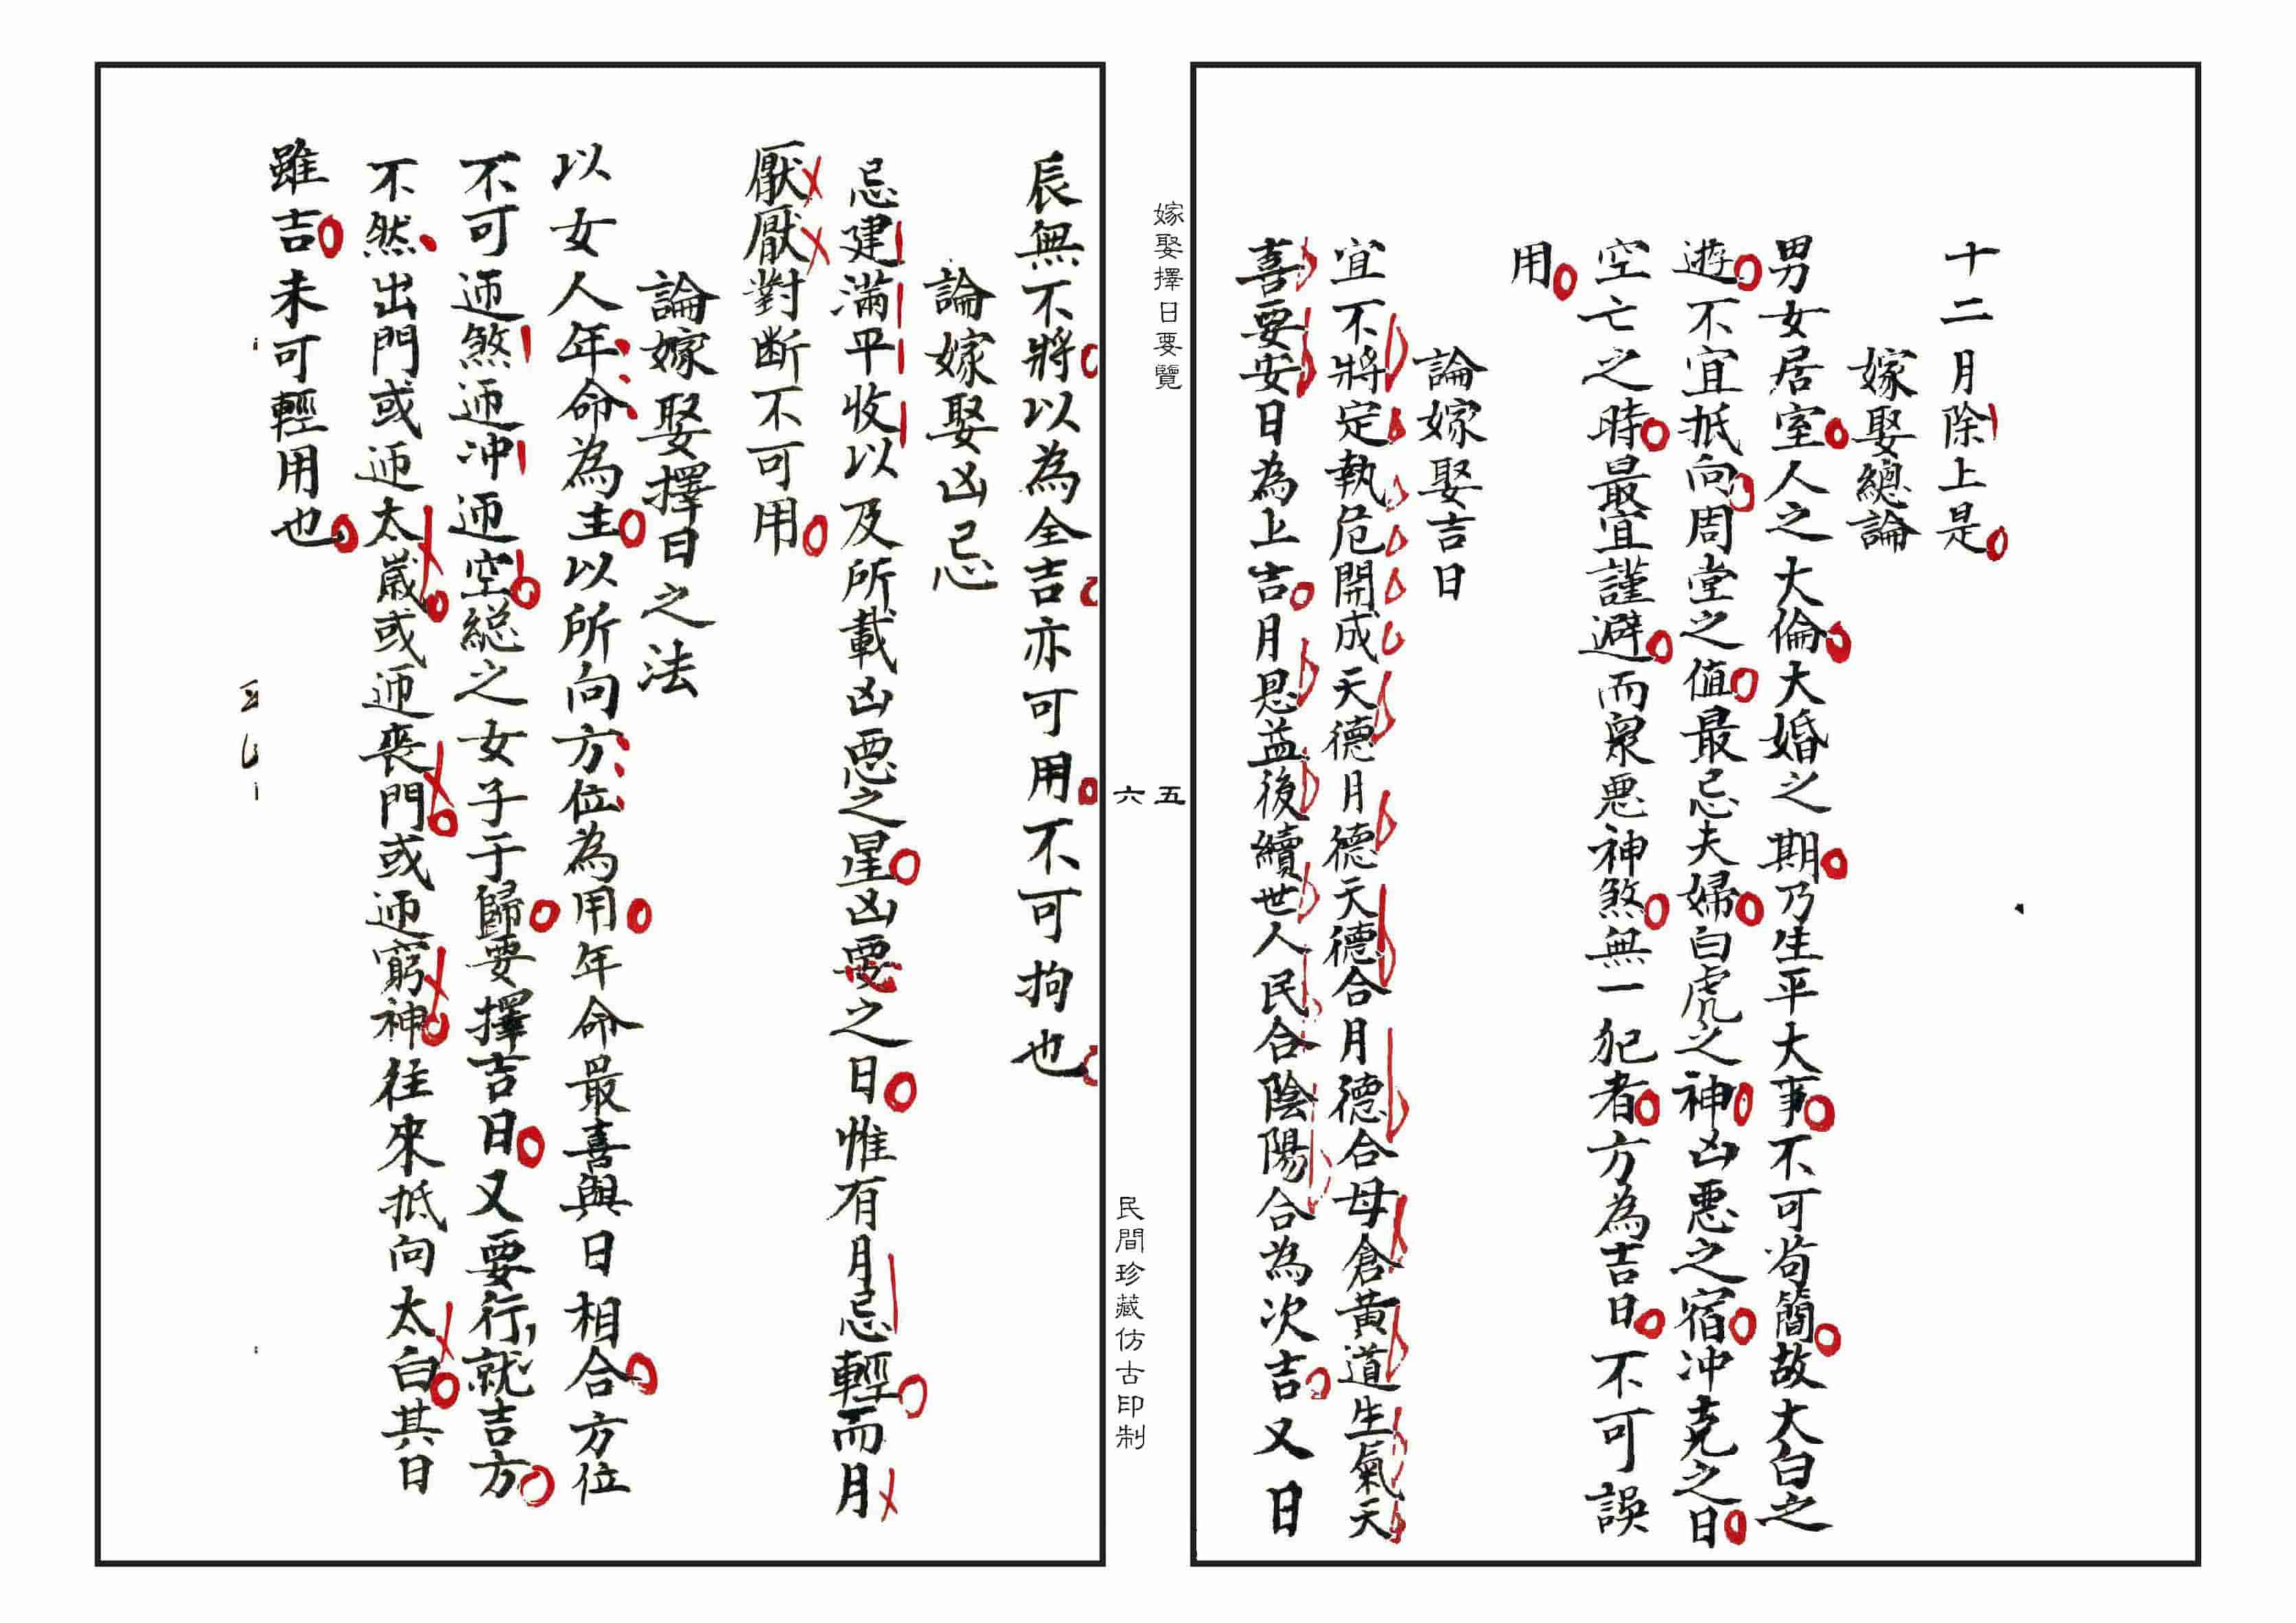 十二月除上是
嫁娶總論
男女居室人之大倫大婚之期乃生平大事不可苟簡故大白之
遊不宜抵向周堂之值最忌夫婦白虎之神凶惡之宿冲克之日
空亡之時最宜謹避而衆悪神煞無一犯者方為吉日不可誤
用
論嫁娶吉日
宜不將定執危開成天德月德天德合月德合母倉黃道生氣天
喜要安日為上吉月恩益後續世人民合陰陽合為次吉又日
嫁娶擇日要覽
五
六
民間珍藏仿古印制
辰無不將以為全吉亦可用不可拘也
論嫁娶凶忌
忌建滿平收以及所載凶惡之星凶要之日惟有月忌輕而月
厭厭對断不可用
論嫁娶擇日之法
以女人年命為主以所向方位為用年命最喜與日相合方位
不可迊煞迊冲迊空総之女子于歸要擇吉日又要行就吉方
不然出門或迊太嵗或迊丧門或迊窮神往來抵向太白其日
雖吉未可輕用也